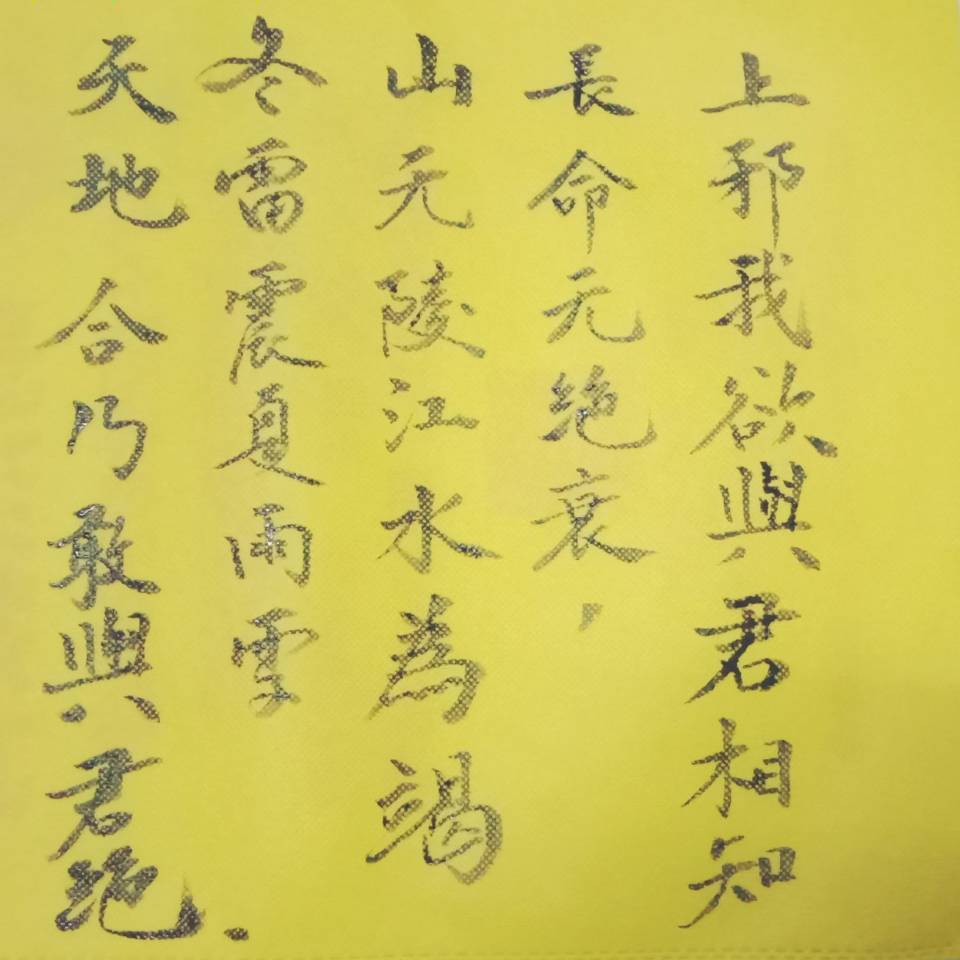 上邪我欲與君相知
長命元绝衰，
山元陵江水為竭
冬雷震夏雨雪
天地合乃敢與君绝.